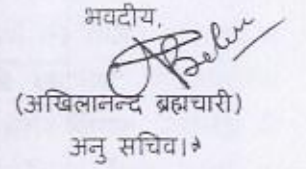 भवदीय,
(अखिलानन्द ब्रह्मचारी)
अनु सचिव।